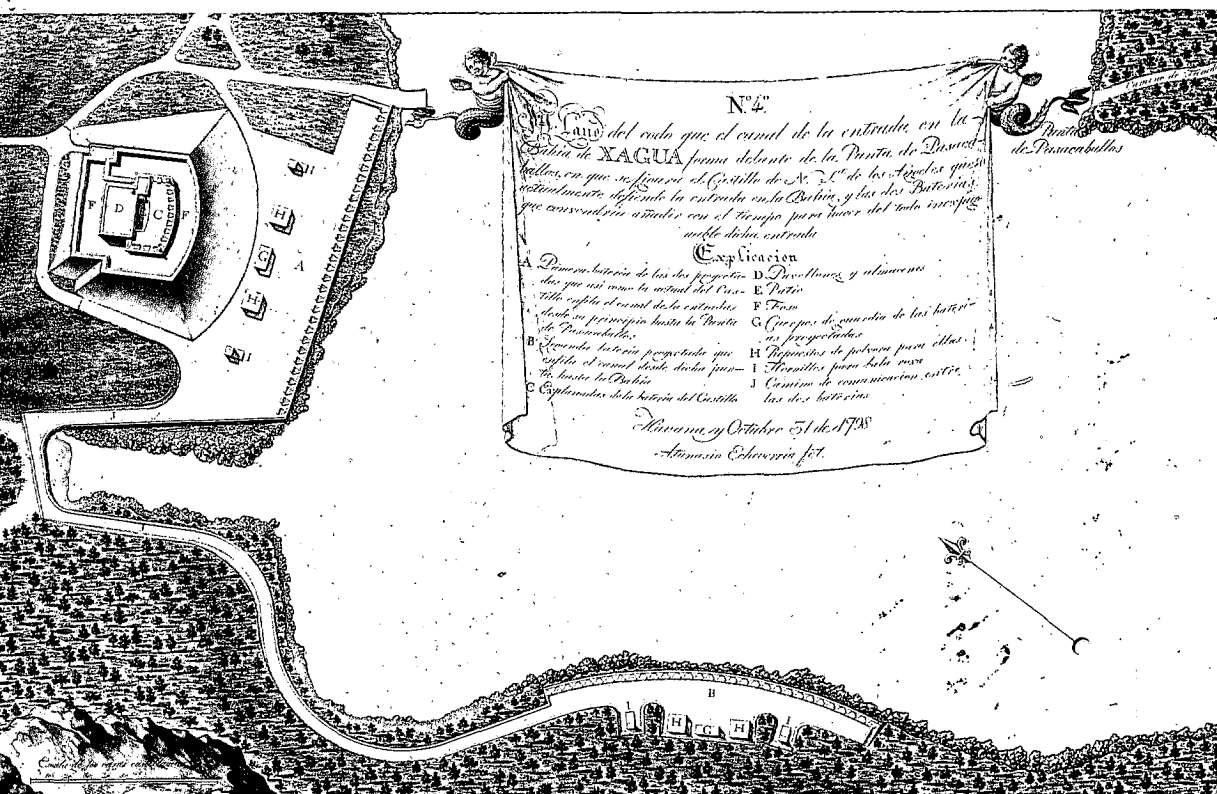 N.º 4.º
del codo que el canal de la entrada en la
Bahia de XAGUA forma delante de la Punta de Pasaca-
ballos, en que se figura el Castillo de N. S.ª de los Angeles que
actualmente defiende la entrada en la Bahia, y las dos Baterias
que convendria añadir con el tiempo para hacer del todo inexpug-
nable dicha entrada
Explicacion
A Primera bateria de las dos proyecta-
das que asi como la actual del Cas-
tillo enfila el canal de la entrada
desde su principio hasta la Punta
de Pasacaballos
B Segunda bateria proyectada que
enfila el canal desde dicha pun-
ta hasta la Bahia
C Esplanadas de la bateria del Castillo
D Pavellones y almacenes
E Patio
F Foso
G Cuerpos de guardia de las bateri-
as proyectadas
H Repuestos de polvora para ellas
I Hornillos para bala roxa
J Camino de comunicacion entre
las dos baterias
Havana, y Octubre 31 de 1798
Atanasio Echeverria fct.
Punta
de Pasacaballos
Camino de
F
D
C
F
H
H
G
A
H
I
B
I
H
G
H
I